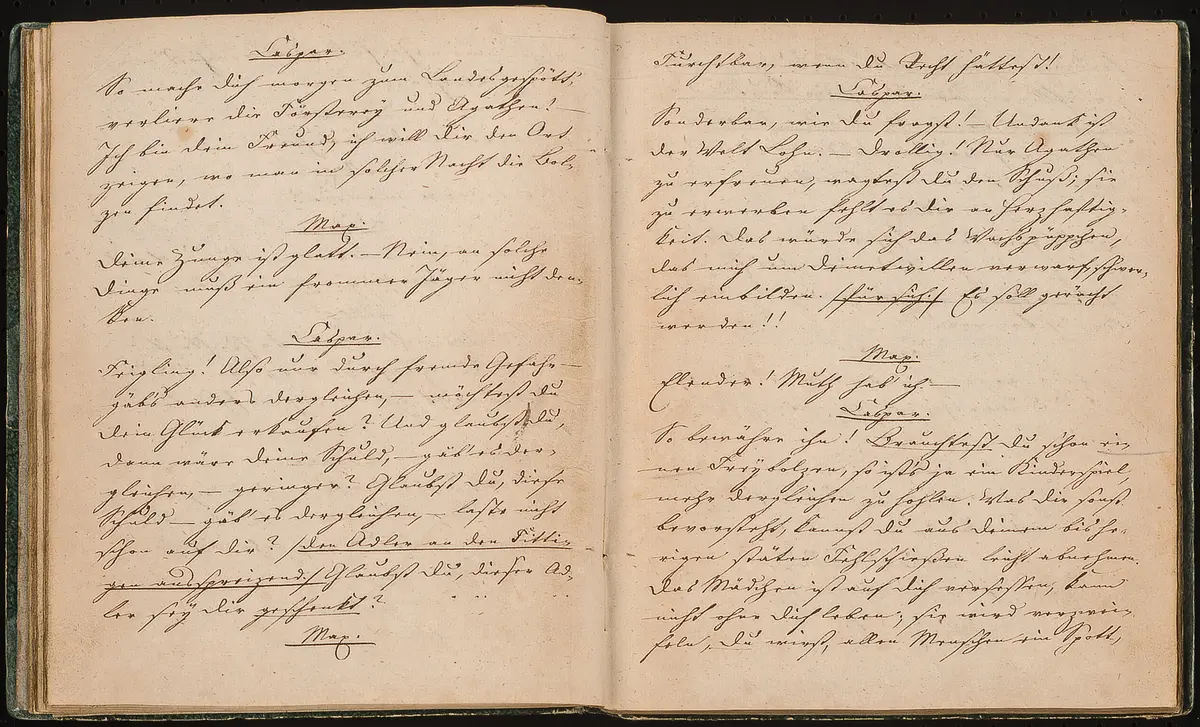 Caspar.
So mache dich morgen zum Landesgespött,
verliere die Försterey und Agathen! —
Ich bin dein Freund, ich will dir den Ort
zeigen, wo man in solcher Nacht die Bol-
zen findet.
Max.
Deine Zunge ist glatt. — Nein, an solche
Dinge muß ein frommer Jäger nicht den-
ken.
Caspar.
Feigling! Also nur durch fremde Gefahr —
gäb's anders dergleichen, — möchtest du
dein Glück erkaufen? Und glaubst du,
dann wäre deine Schuld, — gäb' es der-
gleichen, — geringer? Glaubst du, diese
Schuld — gäb' es dergleichen, — laste nicht
schon auf dir? /den Adler an den Fitti-
gen ausspreizend./ Glaubst du, dieser Ad-
ler sey dir geschenkt?
Max.
Furchtbar, wenn du Recht hättest!
Caspar.
Sonderbar, wie du fragst! — Undank ist
der Welt Lohn. — Drollig! Nur Agathen
zu erfreuen, wagtest du den Schuß; sie
zu erwerben fehlt es dir an Herzhaftig-
keit. Das würde sich das Wachspüppchen,
das mich um deinetwillen verwarf, schwer-
lich einbilden. /für sich./ Es soll gerächt
werden!!
Max.
Elender! Muth hab' ich. —
Caspar.
So bewähre ihn! Brauchtest du schon ei-
nen Freybolzen, so ist's ja ein Kinderspiel,
mehr dergleichen zu hohlen. Was dir sonst
bevorsteht, kannst du aus deinem bishe-
rigen stäten Fehlschießen leicht abnehmen.
Das Mädchen ist auf dich versessen, kann
nicht ohne dich leben; sie wird verzwei-
feln, du wirst, allen Menschen ein Spott,